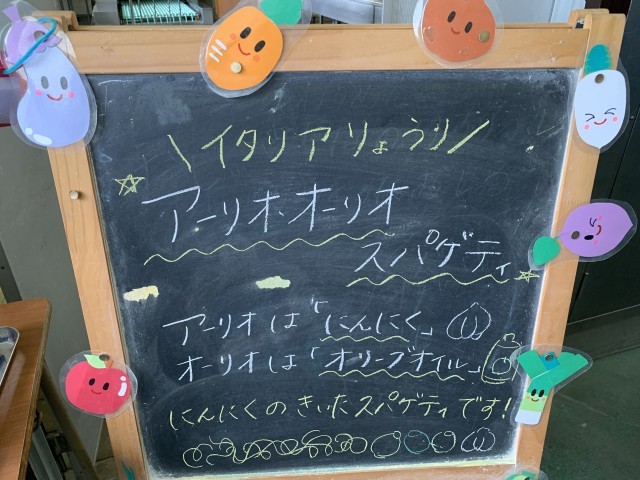 ＼イタリアりょうり／
アーリオ・オーリオ
スパゲティ
アーリオは「にんにく」
オーリオは「オリーブオイル」
にんにくのきいたスパゲティです!